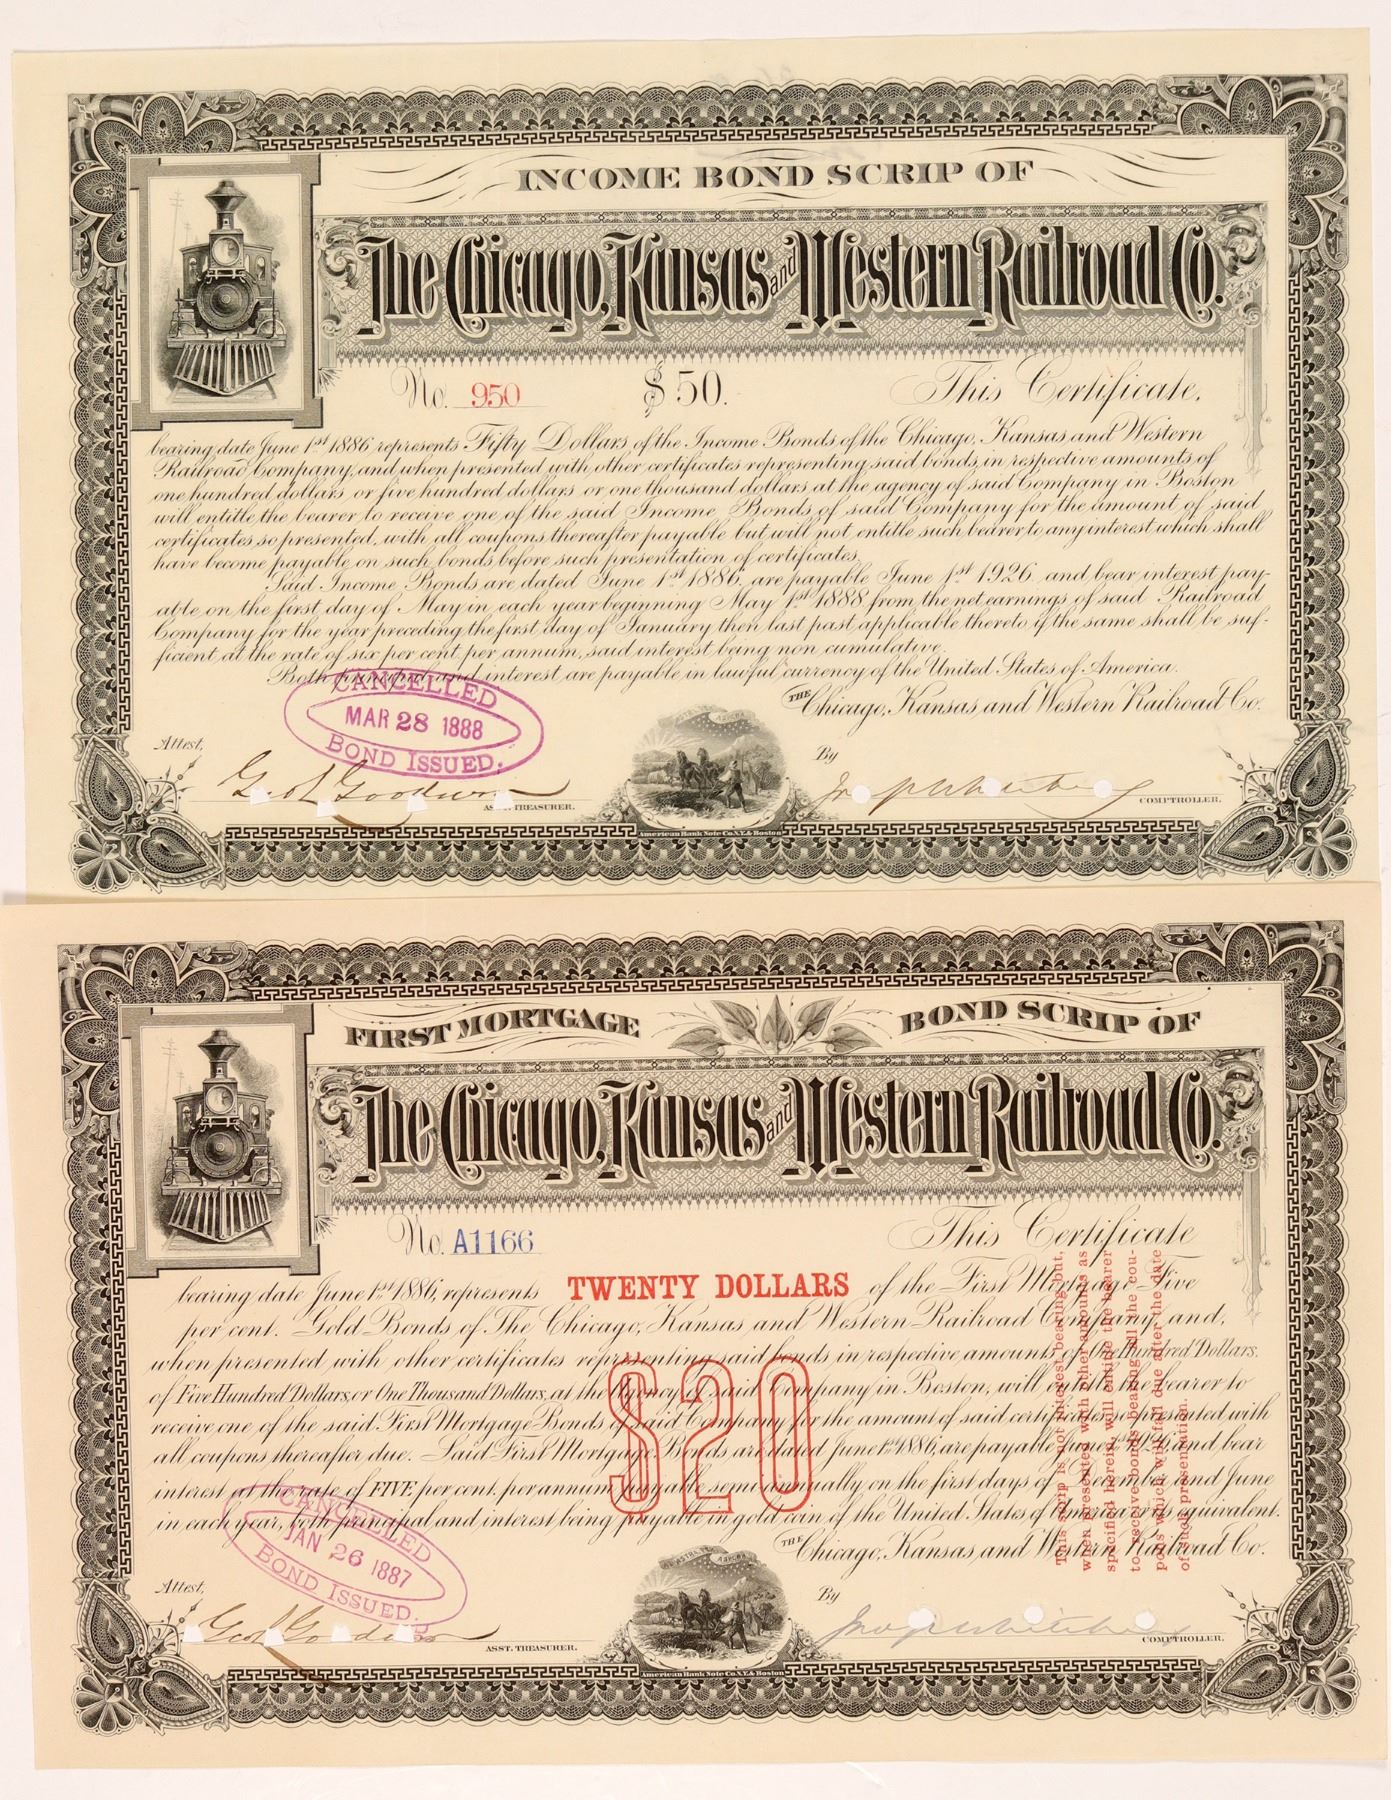 INCOME BOND SCRIP OF
The Chicago, Kansas and Western Railroad Co.
No. 950 $50. This Certificate,
bearing date June 1st 1886, represents Fifty Dollars of the Income Bonds of the Chicago, Kansas and Western
Railroad Company, and when presented with other certificates representing said bonds, in respective amounts of
one hundred dollars or five hundred dollars or one thousand dollars at the agency of said Company in Boston
will entitle the bearer to receive one of the said Income Bonds of said Company for the amount of said
certificates so presented, with all coupons thereafter payable but will not entitle such bearer to any interest which shall
have become payable on such bonds before such presentation of certificates.
Said Income Bonds are dated June 1st 1886, are payable June 1st 1926 and bear interest pay-
able on the first day of May in each year beginning May 1st 1888 from the net earnings of said Railroad
Company for the year preceding the first day of January then last past applicable thereto if the same shall be suf-
ficient at the rate of six per cent. per annum, said interest being non cumulative.
Both principal and interest are payable in lawful currency of the United States of America.
CANCELLED
MAR 28 1888
BOND ISSUED.
THE Chicago, Kansas and Western Railroad Co.
Attest, By
Geo. L. Goodwin ASST. TREASURER. Jno. P. Whitebey COMPTROLLER.
American Bank Note Co. N.Y. & Boston
FIRST MORTGAGE BOND SCRIP OF
The Chicago, Kansas and Western Railroad Co.
No. A1166 This Certificate
bearing date June 1st 1886, represents TWENTY DOLLARS of the First Mortgage Five
per cent. Gold Bonds of The Chicago, Kansas and Western Railroad Company, and,
when presented with other certificates representing said bonds in respective amounts of One Hundred Dollars,
of Five Hundred Dollars, or One Thousand Dollars, at the Agency of said Company in Boston, will entitle the bearer to
receive one of the said First Mortgage Bonds of said Company for the amount of said certificates so presented with
all coupons thereafter due. Said First Mortgage Bonds are dated June 1st 1886, are payable June 1st 1926, and bear
interest at the rate of FIVE per cent. per annum payable semi-annually on the first days of December and June
in each year, both principal and interest being payable in gold coin of the United States of America or its equivalent.
$20
This scrip is not interest bearing but,
when presented with other amounts as
specified herein, will entitle the bearer
to receive bonds bearing all the cou-
pons which will fall due after the date
of such presentation.
CANCELLED
JAN 26 1887
BOND ISSUED.
THE Chicago, Kansas and Western Railroad Co.
AD ASTRA PER ASPERA
Attest, By
Geo. L. Goodwin ASST. TREASURER. COMPTROLLER.
American Bank Note Co. N.Y. & Boston